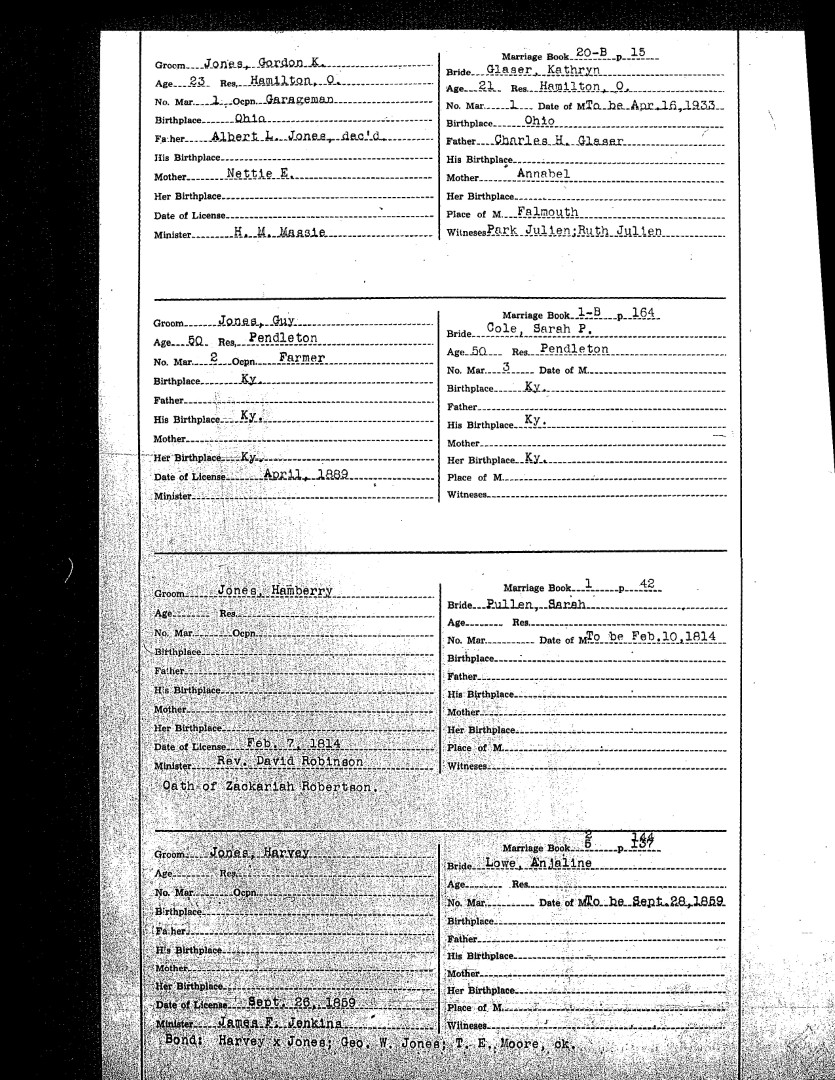 Groom Jones, Gordon K.
Age 23 Res. Hamilton, O.
No. Mar. 1 Ocpn. Garageman
Birthplace Ohio
Father Albert L. Jones, dec'd.
His Birthplace
Mother Nettie E.
Her Birthplace
Date of License
Minister H. M. Massie
Marriage Book 20-B p. 15
Bride Glaser, Kathryn
Age 21 Res. Hamilton, O.
No. Mar. 1 Date of M To be Apr.16,1933
Birthplace Ohio
Father Charles H. Glaser
His Birthplace
Mother Annabel
Her Birthplace
Place of M. Falmouth
Witneses Park Julien;Ruth Julien
Groom Jones, Guy
Age 50 Res. Pendleton
No. Mar. 2 Ocpn. Farmer
Birthplace Ky.
Father
His Birthplace Ky.
Mother
Her Birthplace Ky.
Date of License April, 1889
Minister
Marriage Book 1-B p. 164
Bride Cole, Sarah P.
Age 50 Res. Pendleton
No. Mar. 3 Date of M.
Birthplace Ky.
Father
His Birthplace Ky.
Mother
Her Birthplace Ky.
Place of M.
Witneses
Groom Jones, Hamberry
Age Res.
No. Mar. Ocpn.
Birthplace
Father
His Birthplace
Mother
Her Birthplace
Date of License Feb. 7, 1814
Minister Rev. David Robinson
Oath of Zackariah Robertson.
Marriage Book 1 p. 42
Bride Pullen, Sarah
Age Res.
No. Mar. Date of M To be Feb.10,1814
Birthplace
Father
His Birthplace
Mother
Her Birthplace
Place of M.
Witneses
Groom Jones, Harvey
Age Res.
No. Mar. Ocpn.
Birthplace
Father
His Birthplace
Mother
Her Birthplace
Date of License Sept. 26, 1859
Minister James F. Jenkins
Bond: Harvey x Jones; Geo. W. Jones; T. E. Moore, ok.
2 144
Marriage Book 5 p. 137
Bride Lowe, Anjaline
Age Res.
No. Mar. Date of M To be Sept.28,1859
Birthplace
Father
His Birthplace
Mother
Her Birthplace
Place of M.
Witneses